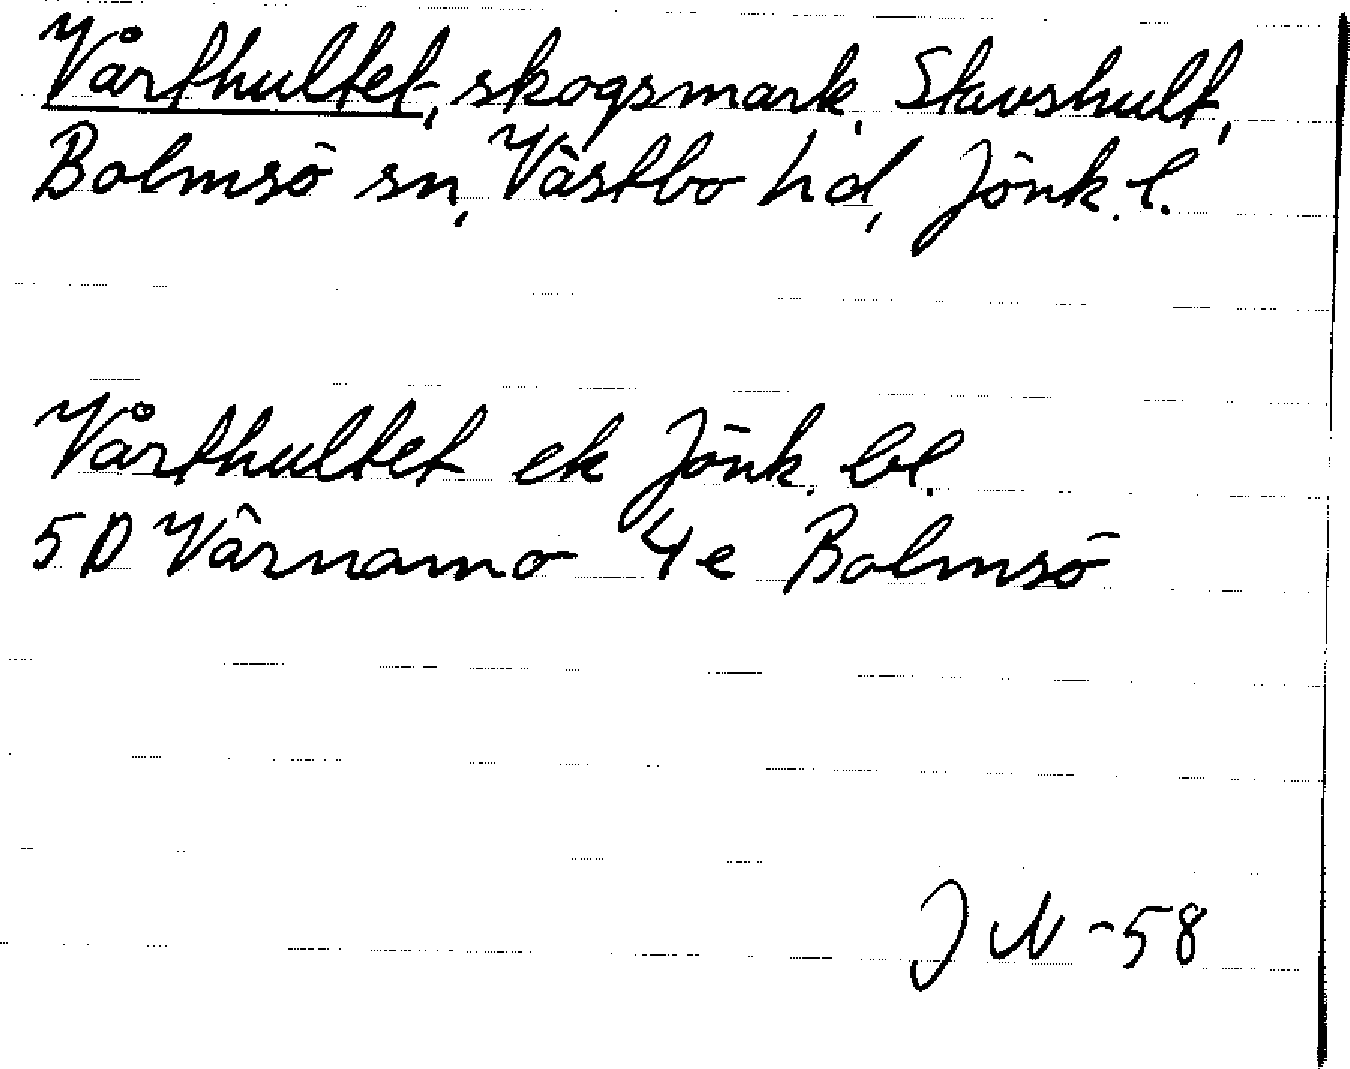 Vårthultet, skogsmark, Stavshult,
Bolmsö sn, Västbo hd, Jönk. l.
Vårthultet ek Jönk. bl.
5D Värnamo 4e Bolmsö
JN-58